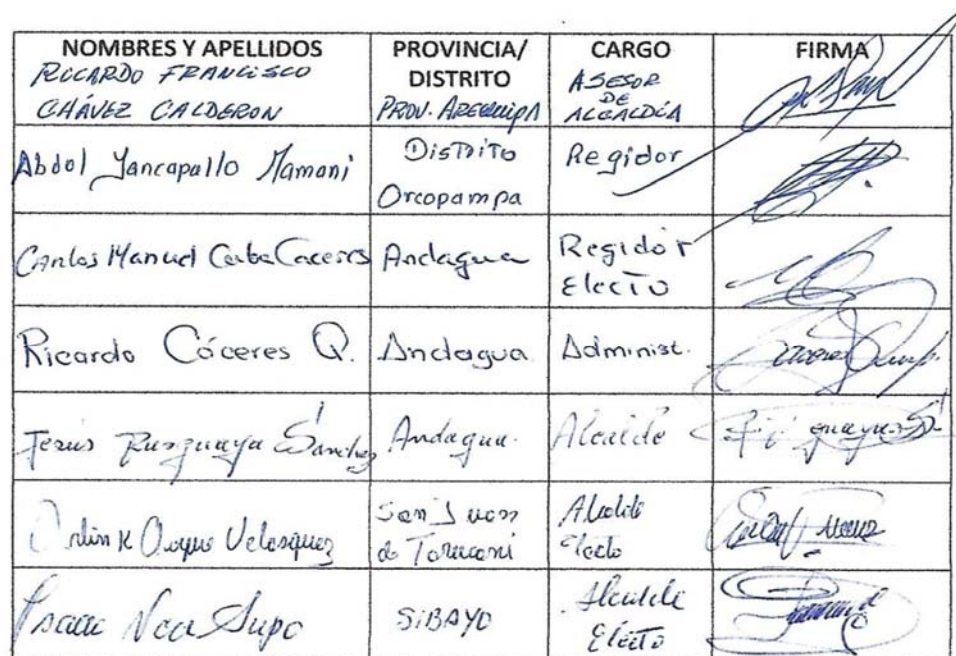 NOMBRES Y APELLIDOS PROVINCIA/ DISTRITO CARGO FIRMA
RICARDO FRANCISCO CHÁVEZ CALDERON PROV. AREQUIPA ASESOR DE ALCALDÍA
Abdol Mamani Distrito Orcopampa Regidor
Carlos Manuel Caceres Andagua Regidor Electo
Ricardo Cáceres Q. Andagua Administ.
Jesus Sánchez Andagua Alcalde
Velasquez San Juan de Alcalde Electo
Isaac Supo SIBAYO Alcalde Electo